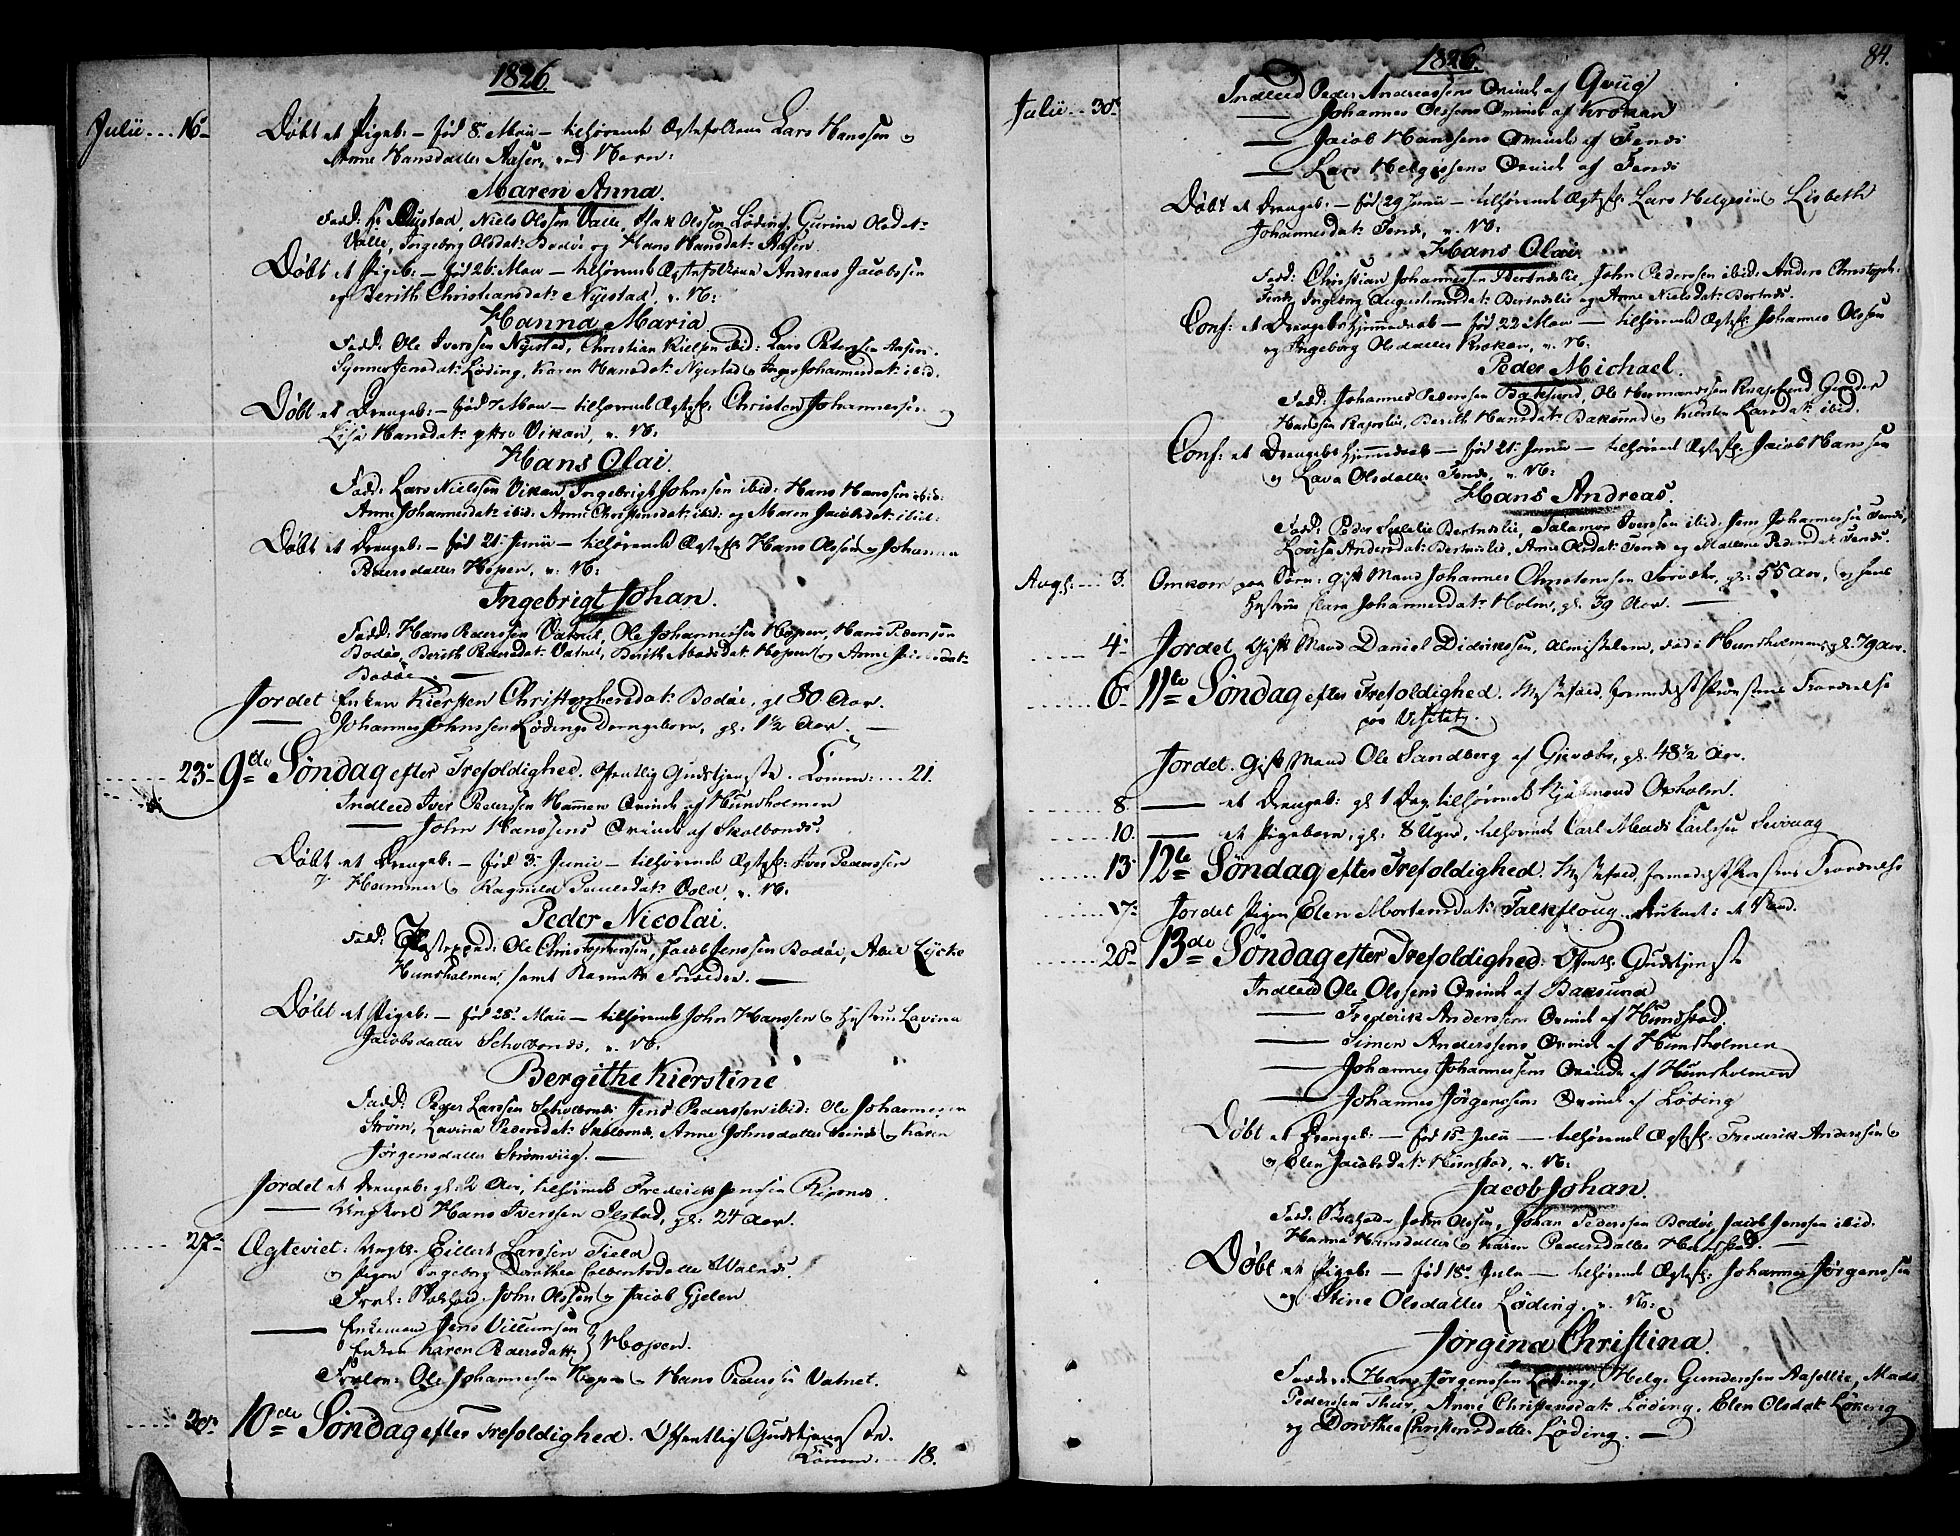 1826.
Julii 16 Døbt et Pigeb: – fød 8 Maii – tilhørende Ægtefolkene Lars Hanssen og
Anne Hansdatter Aasen, ved Navn:
Maren Anna.
Fadd: Niels Olssen Valle, Isak Olssen Løding, Gurina Olsdat:
Valle, Ingeborg Olsdat: Bodøe og Hans Hansdat: Aasen
Døbt et Pigeb: – fød 26 Maii – tilhørende Ægtefolkene Andreas Jacobssen
og Berith Christiansdat: Nyestad, v. N:
Hanna Maria.
Fadd: Ole Iverssen Nyestad, Christian Nielsen ibid: Lars Pedersen Aasen
Synner Jensdat: Løding, Karen Hansdat: Nyestad og Inger Johannesdat: ibid.
Døbt et Drengeb: – fød 7 Maii – tilhørende Ægtef: Christen Johannessen og
Lisa Hansdat: Vikan, v. N:
Hans Olai.
Fadd: Lars Nielssen Vikan, Ingebrigt Johnssen ibid: Hans Hanssen ibid:
Anne Johannesdat: ibid: Anne Christensdat: ibid: og Maren Jacobsdat: ibid:
Døbt et Drengeb: – fød 21 Junii – tilhørende Ægtef: Hans Olssen og Johanna
Pedersdatter Hopen, v. N:
Ingebrigt Johan.
Fadd: Hans Pederssen Vatnet, Ole Johannessen Hopen, Hans Pederssen
Bodøe, Berith Pedersdat: Vatnet, Berith Madsdat: Hopen og Anne Jacobsdat:
Bodøe. —
Jordet Enken Kiersten Christophersdat: Bodøe, gl 80 Aar.
— Johannes Johnssen Lødings Drengebarn, gl: 1½ Aar. —
23 9de Søndag efter Trefoldighed. Offentlig Gudstjeneste. Comm: 21.
Indleed Iver Pederssen Hammer Qvinde af Hundholmen
— John Hanssens Qvinde af Skolbonds.
Døbt et Drengeb: – fød 3 Junii – tilhørende Ægtef: Iver Pederssen
Hammer og Ragnild Paulsdat: v. N:
Peder Nicolai.
Fadd: Ole Christophersen, Jacob Jenssen Bodøe, Lycke
Hundholmen, samt Barnets Forældre. —
Døbt et Pigeb: – fød 28 Maii – tilhørende John Hanssen og Hustrue Lavina
Jacobsdatter Scholbonds, v. N:
Bergithe Kierstine
Fadd: Peder Larssen Scholbonds, Jens Pederssen ibid: Ole Johannesen
Strøm, Lavina Pedersdat: Skolbonds, Anne Johnsdatter og Karen
Jørgensdatter Strømviig. —
Jordet et Drengeb: gl: 2 Aar, tilhørende Frederick Jenssen
— Ungkarl Hans Iverssen Ilstad, gl: 24 Aar.
27 Ægteviet: Ungk: Eillert Larssen Field
og Pigen Ingeborg Dorothea
Forl: John Olssen og Jacob Gjelen
— Enkemand Jens Villumsen
Enken Karen Pedersdatter } Hopen.
Forlov: Ole Johannessen Hopen og Hans Pederssen Vatnet.
30 10de Søndag efter Trefoldighed. Offentlig Gudstjeneste.
Comm: 18.
1826. 84.
Julii 30 Indleed Peder Andreassens Qvinde af Qviig
— Johannes Olssens Qvinde af Krokan
— Jacob Hanssens Qvinde af Fends
— Lars Helgesens Qvinde af Fends
Døbt et Drengeb: – fød 29 Junii – tilhørende Ægtef: Lars Helgesen og Lisbeth
Johannesdat: Fends, v. N:
Hans Olai.
Fadd: Christian Johannessen Bertneslie, John Pederssen ibid: Anders Christoph:
Fends, Ingeborg Augustinusdat: Bertneslie og Anne Nielsdat: Bertnes.
Conf: et Drengeb: Hjemmedaab – fød 22 Maii – tilhørende Ægtef: Johannes Olssen
og Ingeborg Olsdatter Krokan, v. N:
Peder Michael.
Fadd: Johannes Pederssen Baksund, Ole Hermanssen Gunder
Hanssen Berith Hansdat: Baksund og Kirsten Larsdat: ibid.
Conf: et Drengeb: Hjemmedaab – fød 21 Junii – tilhørende Ægtef: Jacob Hanssen
og Lava Olsdatter Fends, v. N:
Hans Andreas.
Fadd: Peder Bertneslie, Salamon Iverssen ibid: Jens Johannessen Fends,
Lovisa Andersdat: Bertneslie, Anne Olsdat: Fends og Mallene Pedersdat: Fends.
Augs: 3. Omkom paa Søen: gift Mand Johannes Christenssen gl: 55 Aar, og hans
Hustrue Clara Johannesdat: Holm, gl: 39 Aar. —
4 Jordet Gift Mand Daniel Didrikssen, Hundholmen, gl: 79 Aar.
6 11te Søndag efter Trefoldighed. Messefald, formedelst Præstens Fraværelse
paa Visitatz.
Jordet. Gift Mand Ole Sandberg af gl: 48½ Aar.
8. — et Drengeb: gl 1 Dag, tilhørende
10. — et Pigebarn, gl: 8 Uger, tilhørende Carl Mads Carlsen
13 12te Søndag efter Trefoldighed. Messefald, formedelst Præstens Fraværelse
17 Jordet Pigen Elen Mortensdat: Falkfloug
20 13de Søndag efter Trefoldighed. Offentl: Gudstjeneste
Indleed Ole Olssens Qvinde af Baksund
— Frederik Anderssens Qvinde af Hundstad.
— Simen Anderssens Qvinde af Hundholmen
— Johannes Johannessens Qvinde af Hundholmen
— Johannes Jørgenssens Qvinde af Løding
Døbt et Drengeb: – fød 15 Julii – tilhørende Ægtef: Frederik Anderssen
og Elen Jacobsdat: Hundstad, v. N:
Jacob Johan.
Fadd: John Olssen, Johan Pederssen Bodøe, Jacob Jenssen ibid:
Hanna Hansdatter og Karen Pedersdatter Hundstad. —
Døbt et Pigeb: – fød 18 Julii – tilhørende Ægtef: Johannes Jørgenssen
og Stine Olsdatter Løding, v. N:
Jørgina Christina.
Faddere: Hans Jørgenssen Løding, Helge Gunderssen Aaselie, Mads
Pederssen Anne Christensdat: Løding, Elen Olsdat: Løding
og Dorothea Christensdatter Løding. —